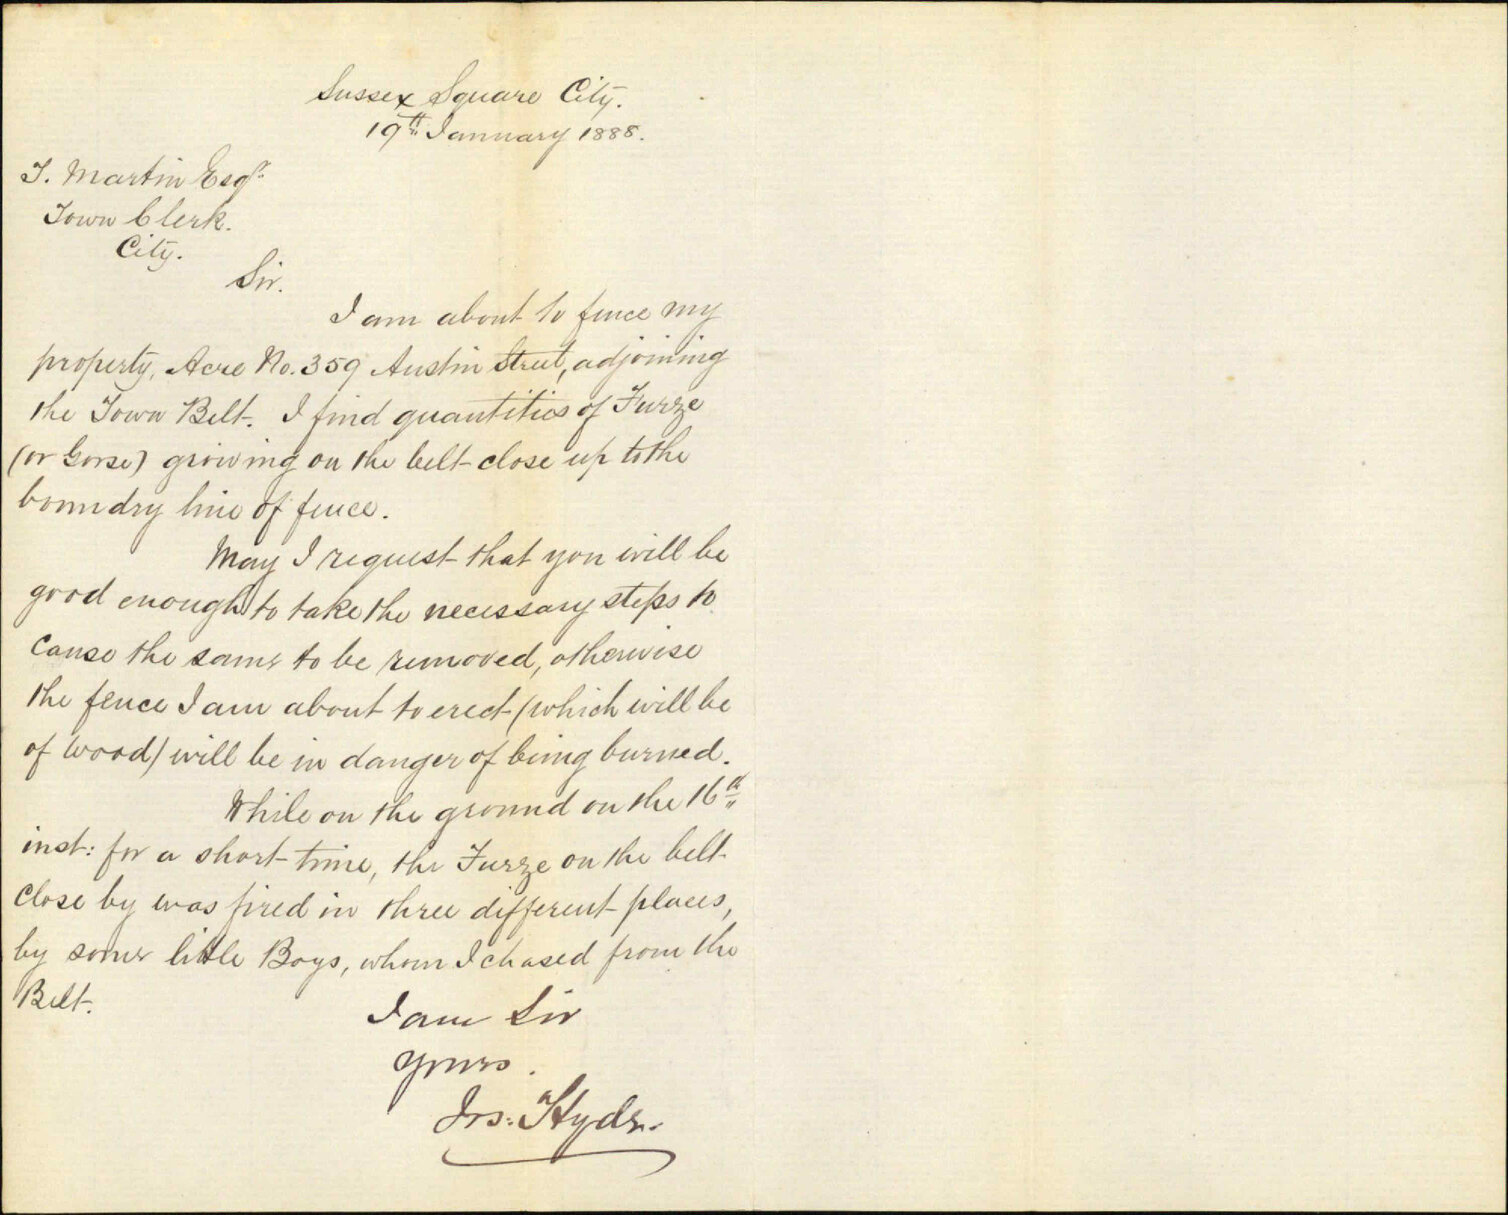 Sussex Square City.
19th January 1888.
T. Martin Esqr.
Town Clerk.
City.
Sir.
I am about to fence my
property, Acre No. 359 Austin Street, adjoining
the Town Belt. I find quantities of Furze
(or Gorse) growing on the belt close up to the
boundry line of fence.
May I request that you will be
good enough to take the necessary steps to
cause the same to be removed, otherwise
the fence I am about to erect (which will be
of wood) will be in danger of being burned.
While on the ground on the 16th
inst: for a short time, the Furze on the belt
close by was fired in three different places,
by some little Boys, whom I chased from the
Belt.
I am Sir
Yours.
Jos: Hyde.